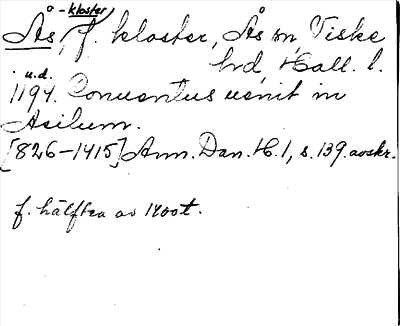 Ås -kloster, f. kloster, Ås sn, Viske
hd, Hall. l.
u.d.
1194. Conuentus uenit in
Asilum.
[826-1415] Ann. Dan. H. 1, s. 139. avskr.
f. hälften av 1400t.